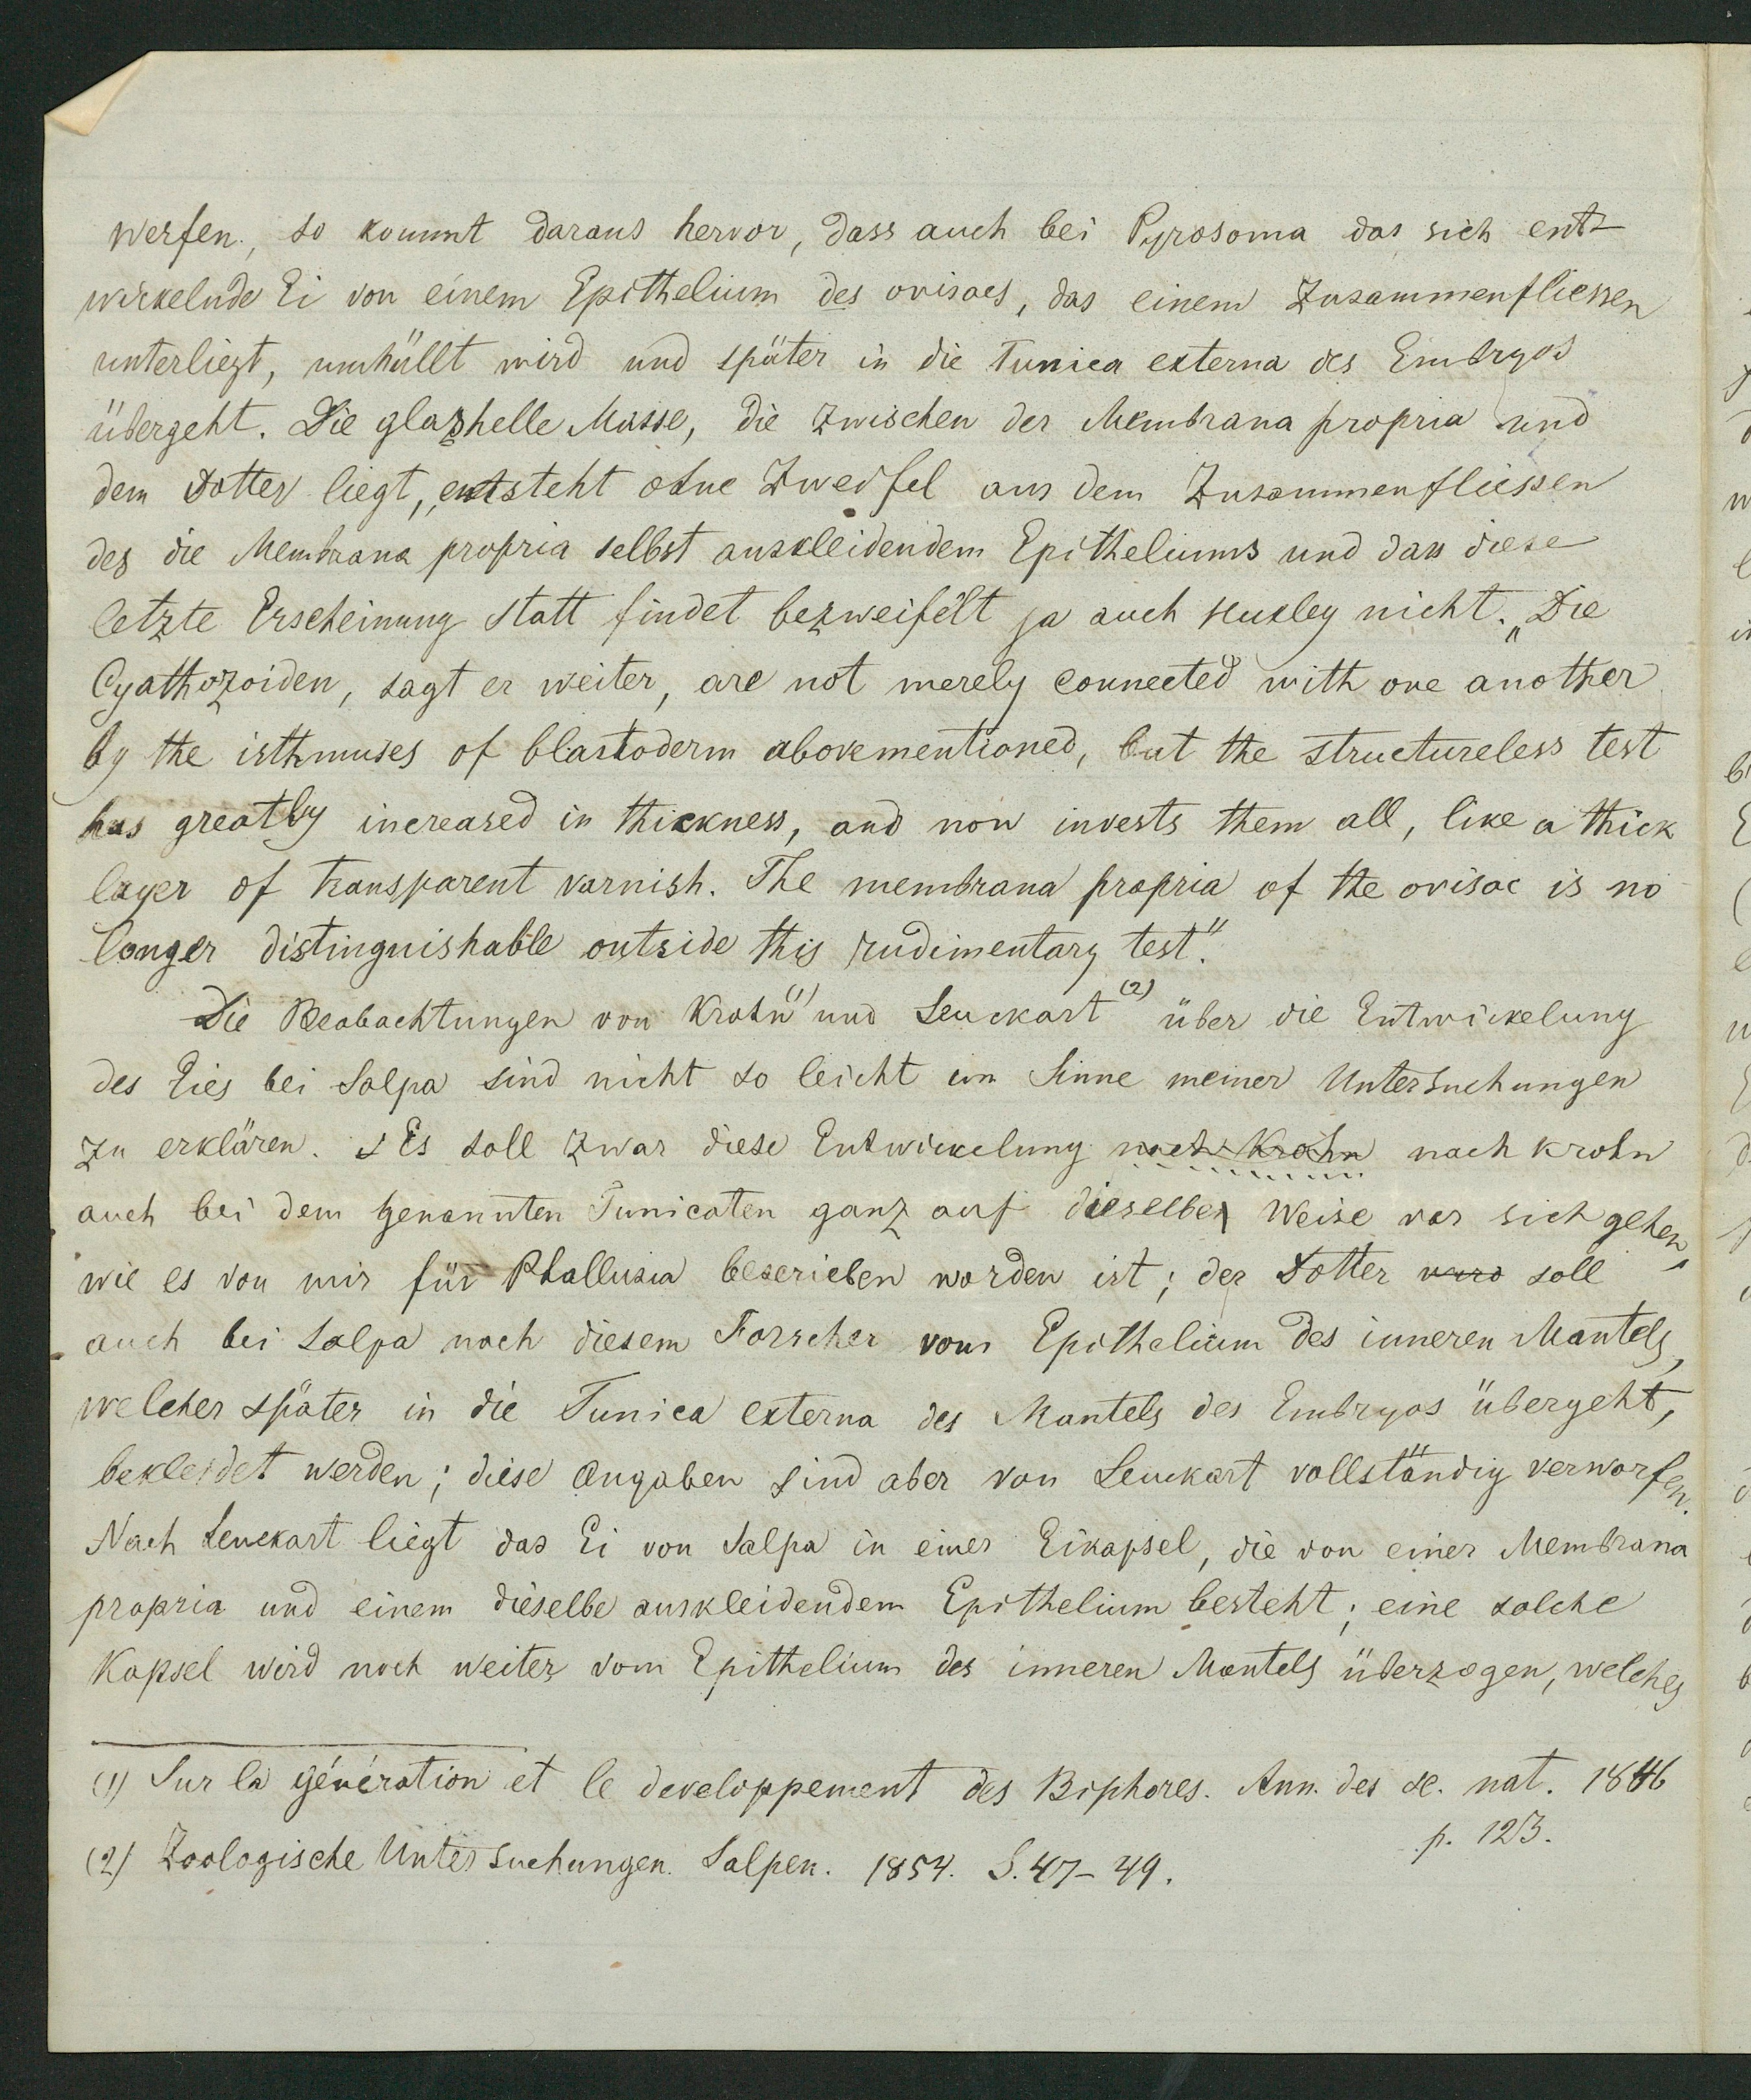 werfen, so kommt daraus hervor, dass auch bei Pyrosoma das sich ent-
wickelnde Ei von einem Epithelium des ovisacs, das einem Zusammenfliessen
unterliegt, umhüllt wird und später in die Tunica externa des Embryos
übergeht. Die glashelle Masse, die zwischen der Membrana propria und
dem Dotter liegt, entsteht ohne Zweifel aus dem Zusammenfliessen
des die Membrana propria selbst auskleidendem Epitheliums und dass diese
letzte Erscheinung statt findet bezweifelt ja auch Huxley nicht. „Die
Cyathozoiden, sagt er weiter, are not merely connected with one another
by the isthmuses of blastoderm abovementioned, but the structureless test
has greatly increased in thickness, and now invests them all, like a thick
layer of transparent varnish. The membrana propria of the ovisac is no
longer distinguishable outside this rudimentary test".
Die Beobachtungen von Krohn (1) und Leuckart (2) über die Entwickelung
des Eies bei Salpa sind nicht so leicht im Sinne meiner Untersuchungen
zu erklären. Es soll zwar diese Entwickelung nach Krohn nach Krohn
auch bei dem genannten Tunicaten ganz auf dieselbe Weise vor sich gehen,
wie es von mir für Phallusia beserieben worden ist; der Dotter wird soll
auch bei Salpa nach diesem Forscher vom Epithelium des inneren Mantels,
welcher später in die Tunica externa des Mantels des Embryos übergeht,
bekleidet werden; diese Angaben sind aber von Leuckart vollständig verworfen.
Nach Leuckart liegt das Ei von Salpa in einer Eikapsel, die von einer Membrana
propria und einem dieselbe auskleidendem Epithelium besteht; eine solche
Kapsel wird noch weiter vom Epithelium des inneren Mantels überzogen, welches
(1) Sur la génération et le developpement des Biphores. Ann. des sc. nat. 1846
p. 123.
(2) Zoologische Untersuchungen. Salpen. 1854. S. 47-49.